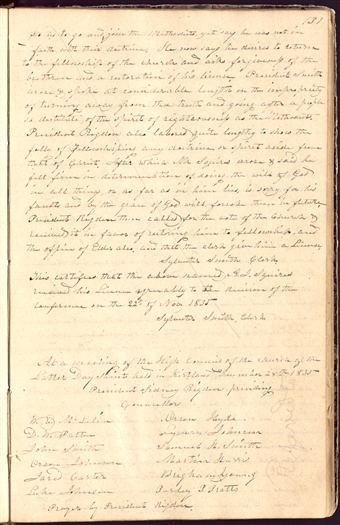 131
so as to go and join the Methodists, yet says he was not in
faith with their doctrine. He now says he desires to return
to the fellowship of the church and asks forgiveness of the
brethren and a restoration of his license. President Smith
arose & spoke at considerable length on the impropriety
of turning away from the truth and going after a people
so destitute of the spirit of righteousness as the Methodists.
President Rigdon also labored quite lengthy to show the
folly of fellowshiping any doctrine or spirit aside from
that of Christ, After which Mr Squires arose & said he
felt firm in determination of doing the will of God
in all things, or as far as in him lies, is sorry for his
faults and by the grace of God will forsake them in future
President Rigdon then called for the vote of the Church &
received it in favor of restoring him to fellowship, and
the office of Elder also, and that the clerk give him a License
Sylvester Smith Clerk
This certifies that the above named, A. J. Squires
received his License agreeably to the decision of the
conference on the 22d of Nov 1835
Sylvester Smith Clerk
At a meeting of the High Council of the church of the
Latter Day Saints held in Kirtland December 28th 1835
President Sidney Rigdon presiding
Councillors
W. E. McLelin Orson Hyde
D. W. Patten Lyman Johnson
John Smith Samuel H. Smith
Orson Johnson Martin Harris
Jared Carter Brigham Young
Luke Johnson Parley P. Pratt
Prayer by President Rigdon,